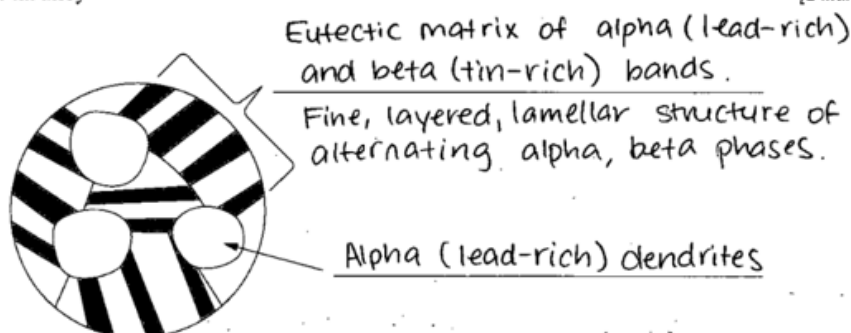 Eutectic matrix of alpha (lead-rich)
and beta (tin-rich) bands.
Fine, layered, lamellar structure of
alternating alpha, beta phases.
Alpha (lead-rich) dendrites